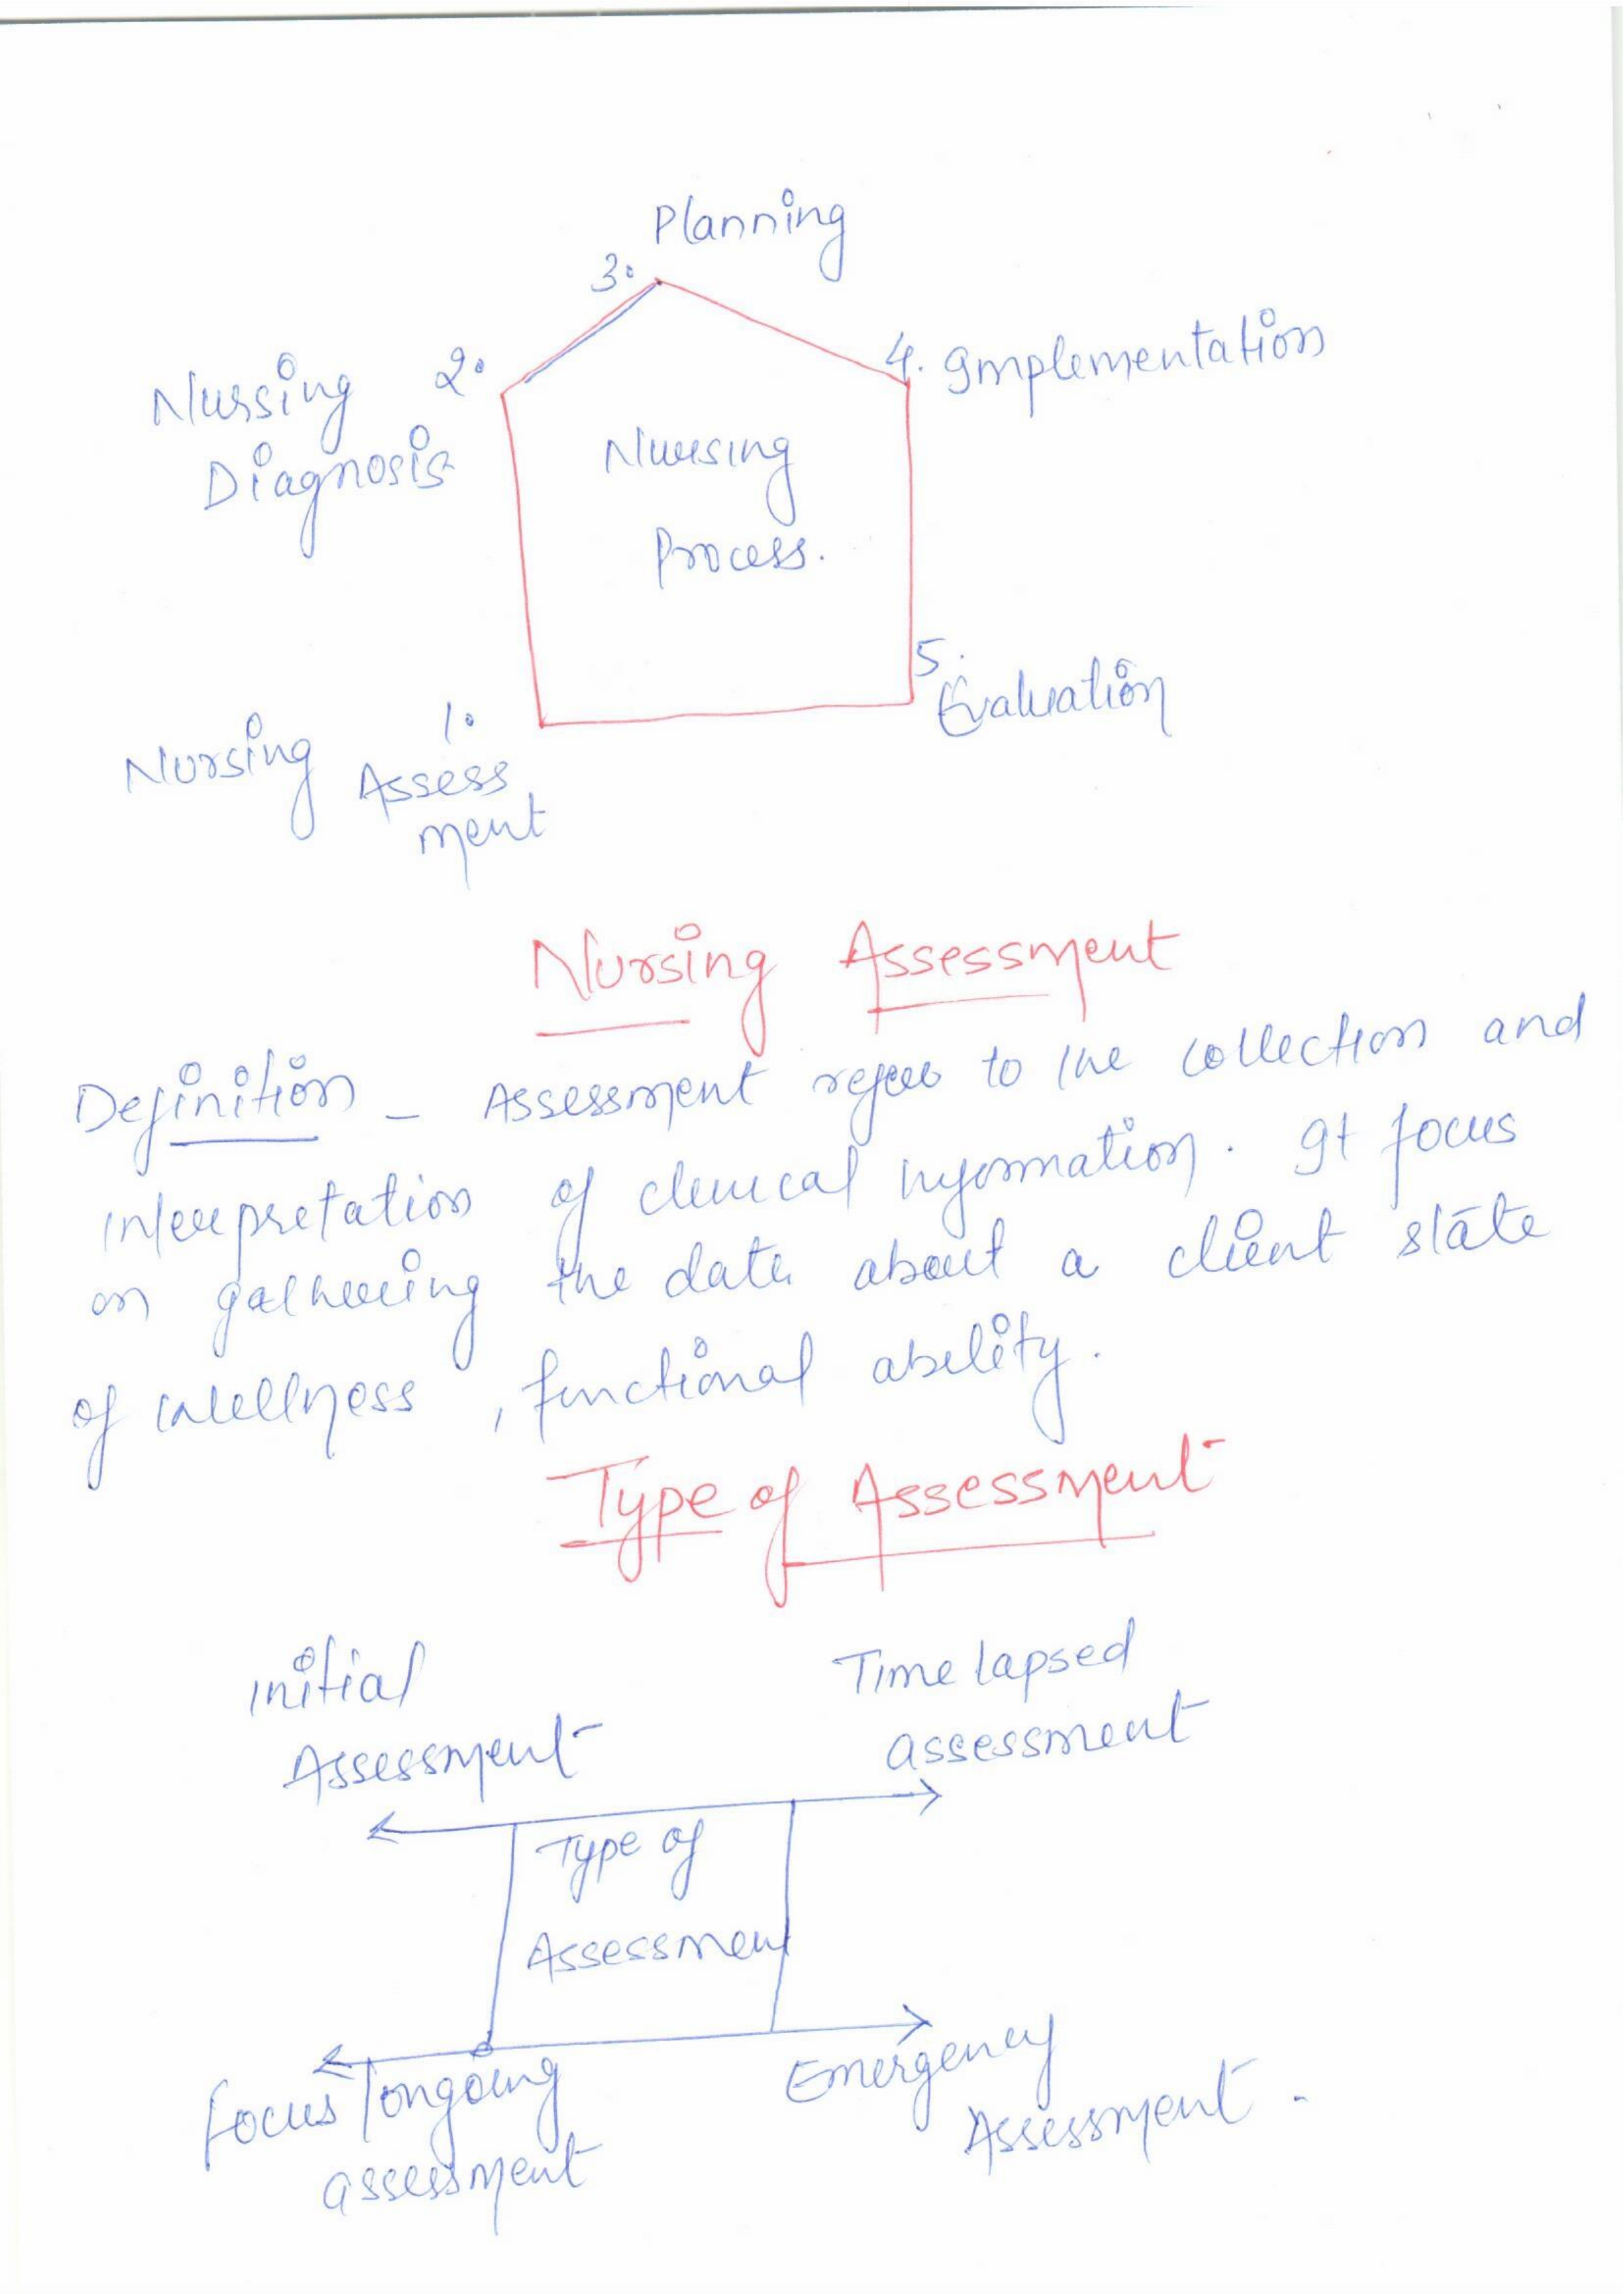 Planning
3.
2.
4. Implementation
Nursing
Diagnosis
Nursing
Process.
5.
Evaluation
1.
Nursing Assess
ment
Nursing Assessment
Definition - Assessment refers to the collection and
interpretation of clinical information. It focus
on gathering the data about a client state
of wellness, functional ability.
Type of Assessment
Initial
Assessment
Time lapsed
assessment
Type of
Assessment
Focus/ongoing
assessment
Emergency
Assessment.